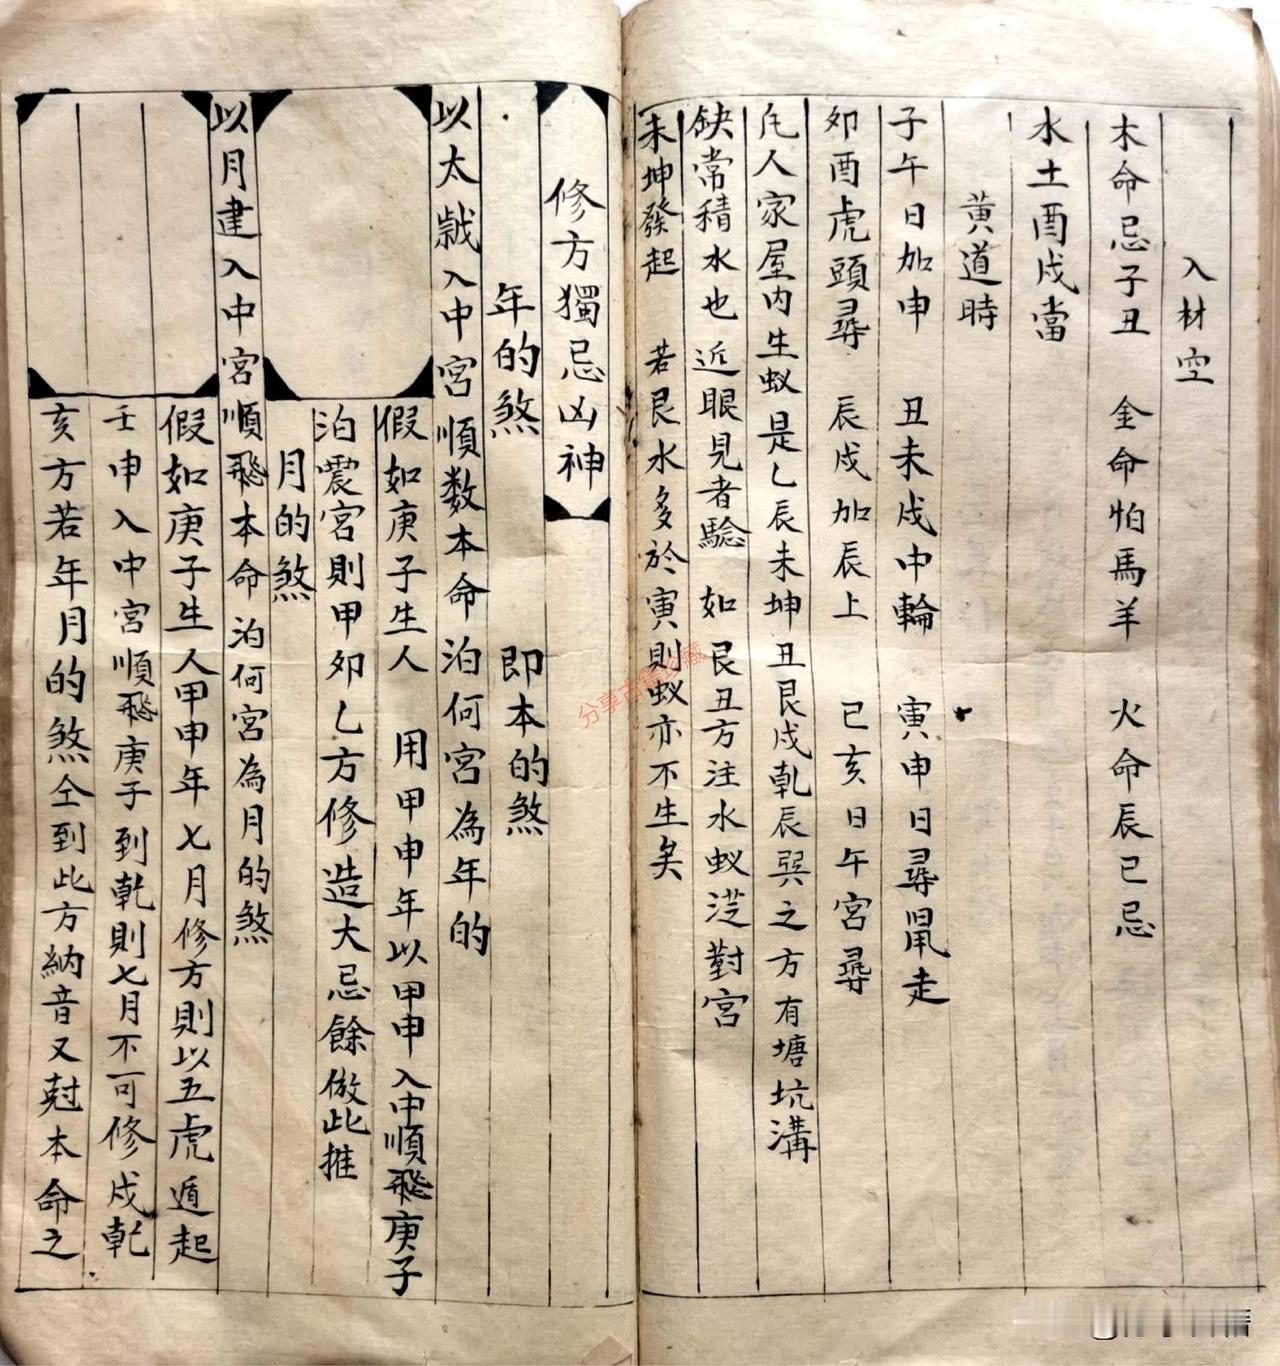 入材空
木命忌子丑　金命怕馬羊　火命辰巳忌
水土酉戌當
黃道時
子午日加申　丑未戌中輪　寅申日尋鼠走
卯酉虎頭尋　辰戌加辰上　巳亥日午宮尋
凡人家屋内生蚁是乙辰未坤丑艮戌乹辰巽之方有塘坑溝
缺常積水也近眼見者驗　如艮丑方注水蚁従對宮
未坤發起　若艮水多於寅則蚁亦不生矣
修方獨忌凶神
年的煞　即本的煞
以太歳入中宮順数本命泊何宮為年的
假如庚子生人　用甲申年以甲申入中順飛庚子
泊震宮則甲卯乙方修造大忌餘倣此推
月的煞
以月建入中宮順飛本命泊何宮為月的煞
假如庚子生人甲申年七月修方則以五虎遁起
壬申入中宮順飛庚子到乹則七月不可修戌乹
亥方若年月的煞仝到此方納音又尅本命之
分享古籍珍藏